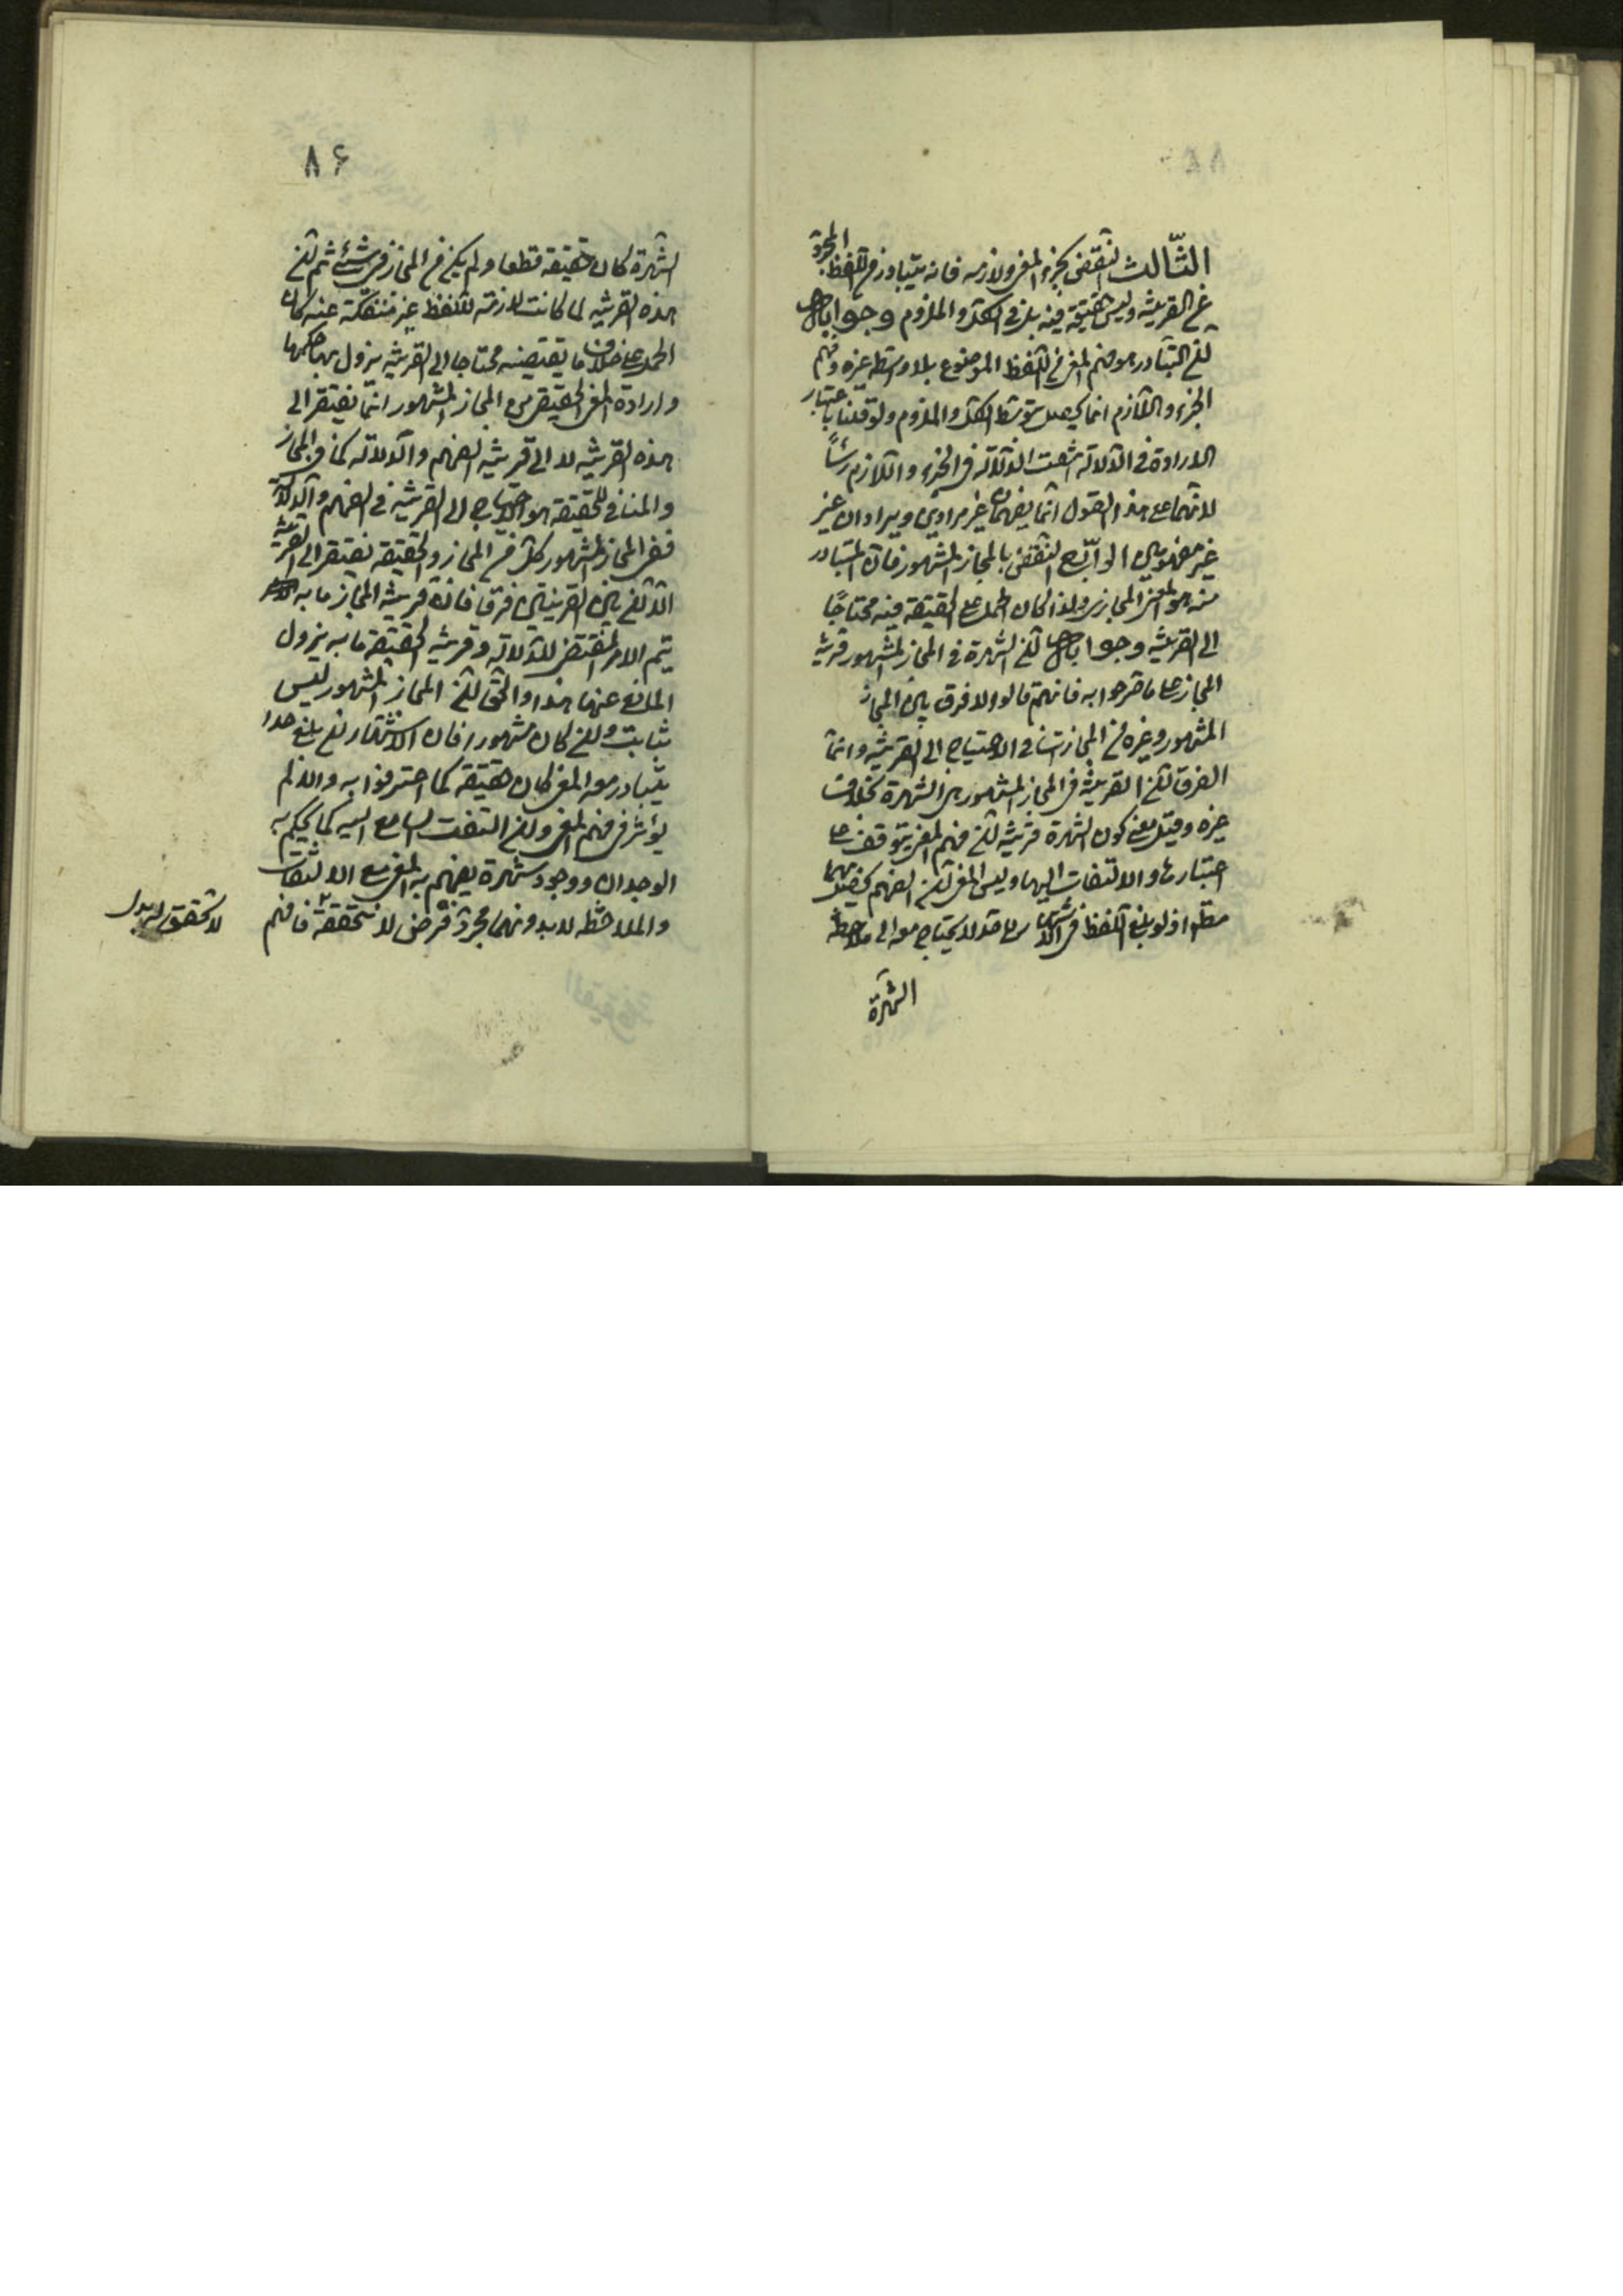 الثّالث النقض بجزء المعنى ولازمه فانه يتبادر من اللفظ المجرّد
عن القرينة وليس حقيقة فيه بل في الكلّ والملزوم وجوابه
ان التبادر هو فهم المعنى من اللفظ الموضوع بلا واسطة غيره وفهم
الجزء واللّازم انما يحصل بتوسّط الكلّ والملزوم ولو قلنا باعتبار
الارادة في الدّلالة انتفت الدّلالة في الجزء واللّازم رأساً
لانهما على هذا القول انّما يفهمان غير مرادين ويرادان غير
غير مفهومين الرّابع النقض بالمجاز المشهور فان المتبادر
منه هو المعنى المجازي ولذا كان الحمل على الحقيقة فيه محتاجًا
الى القرينة وجوابه انّ الشهرة في المجاز المشهور قرينة
المجاز على ما صرحوا به فانهم قالوا لا فرق بين المجاز
المشهور وغيره من المجازات في الاحتياج الى القرينة وانّما
الفرق انّ القرينة في المجاز المشهور هي الشهرة بخلاف
غيره وقيل معنى كون الشهرة قرينة انّ فهم المعنى يتوقف على
اعتبارها والالتفات اليها وليس المعنى انّ الفهم يحصل بهما
مطلقا اذ لو بلغ اللفظ في الاشتهار الى حد لا يحتاج معه الى ملاحظة
الشهرة
۸۶
الشهرة كان حقيقة قطعا ولم يكن من المجاز في شئ ثم انّ
هذه القرينة لما كانت لازمة للّفظ غير منفكّة عنه كان
الحمل على خلاف ما يقتضيه محتاجا الى القرينة يزول بها حكمها
وارادة المعنى الحقيقي من المجاز المشهور انّما يفتقر الى
هذه القرينة لا الى قرينة الفهم والدّلالة كما في المجاز
والمنافي للحقيقة هو الاحتياج الى القرينة في الفهم والدّلالة
ففي المجاز المشهور كلّ من المجاز والحقيقة يفتقر الى القرينة
الّا انّ بين القرينتين فرقا فان قرينة المجاز ما به
يتم الامر المقتضي للدّلالة وقرينة الحقيقة ما به يزول
المانع عنها هذا والحقّ انّ المجاز المشهور ليس
بثابت وان كان مشهورا فان الاشتهار ان بلغ حدا
يتبادر معه المعنى كان حقيقة كما اعترفوا به والّا لم
يؤثر في فهم المعنى وان التفت السامع اليه كما يحكم به
الوجدان ووجود شهرة يفهم به المعنى مع الالتفات
والملاحظة لا بدونهما مجرّد فرض لا نتحققه فافهم
لا تحقق له